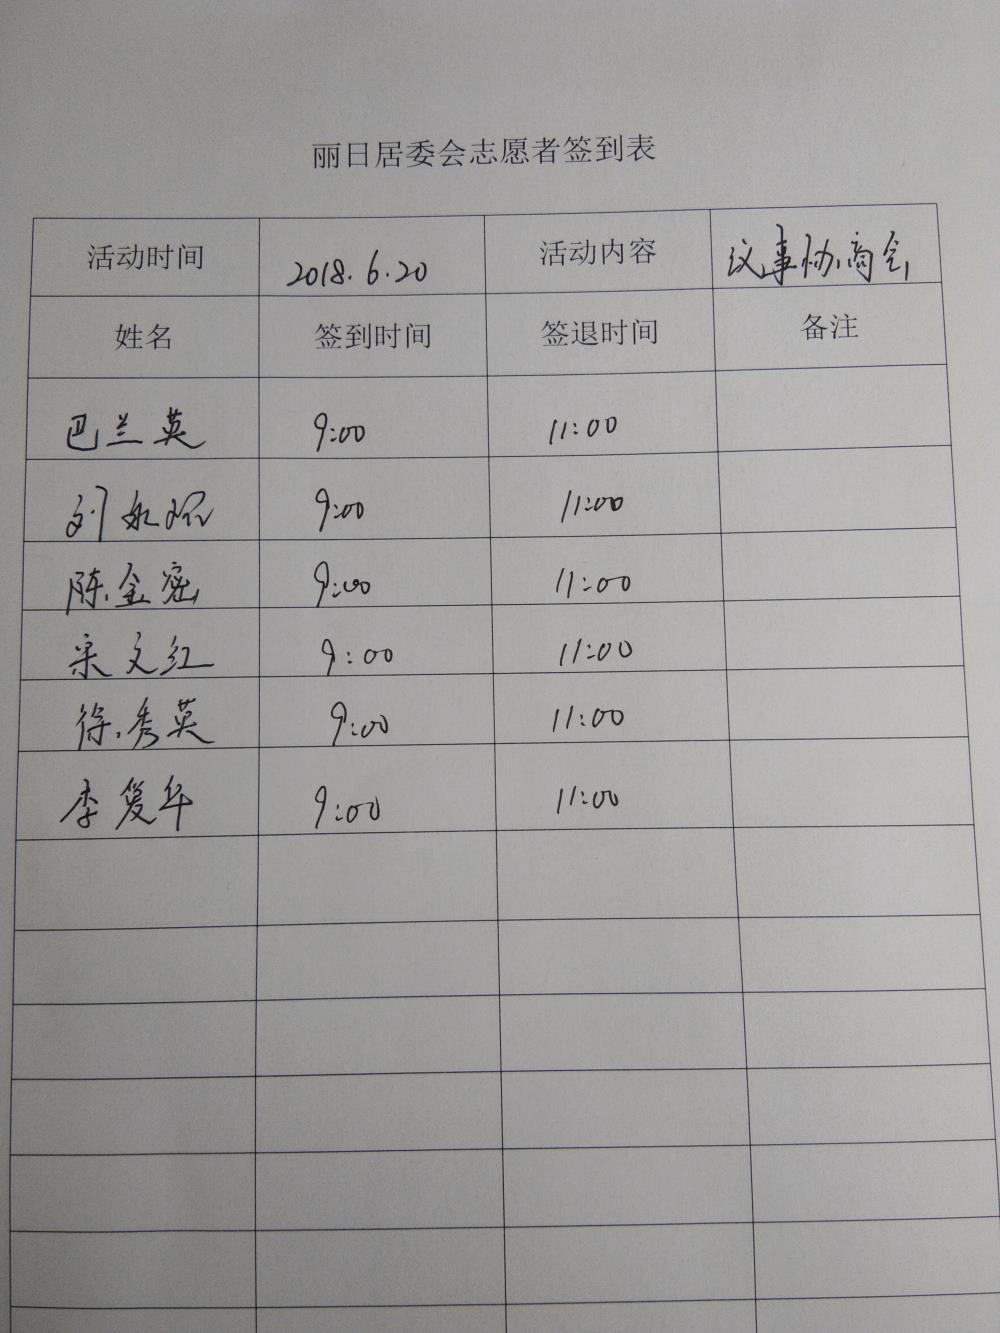 丽日居委会志愿者签到表
活动时间 2018.6.20 活动内容 议事协商会
姓名 签到时间 签退时间 备注
巴兰英 9:00 11:00
刘永 9:00 11:00
陈金密 9:00 11:00
宋文红 9:00 11:00
徐秀英 9:00 11:00
李复华 9:00 11:00